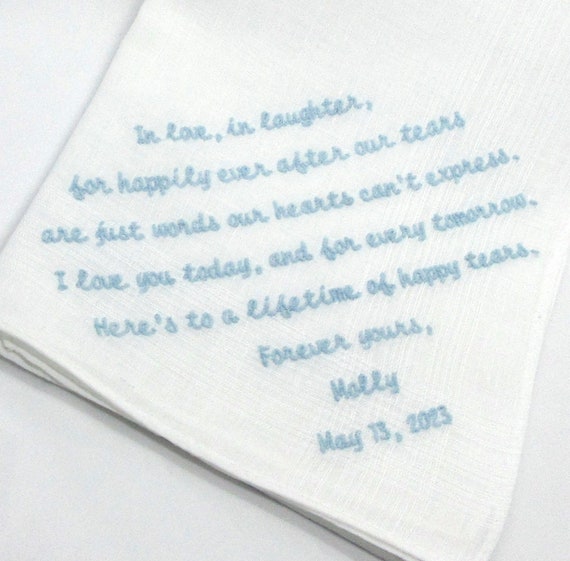 In love, in laughter,
for happily ever after our tears
are just words our hearts can't express.
I love you today, and for every tomorrow.
Here's to a lifetime of happy tears.
Forever yours,
Molly
May 13, 2023